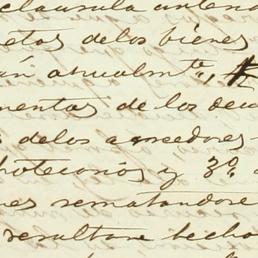 clausula anterio
etas delos bienes
an atualmte,
mentos de los deu
s delos acreedores
potecarios y 3º.
nes rematandore
resultare hecho